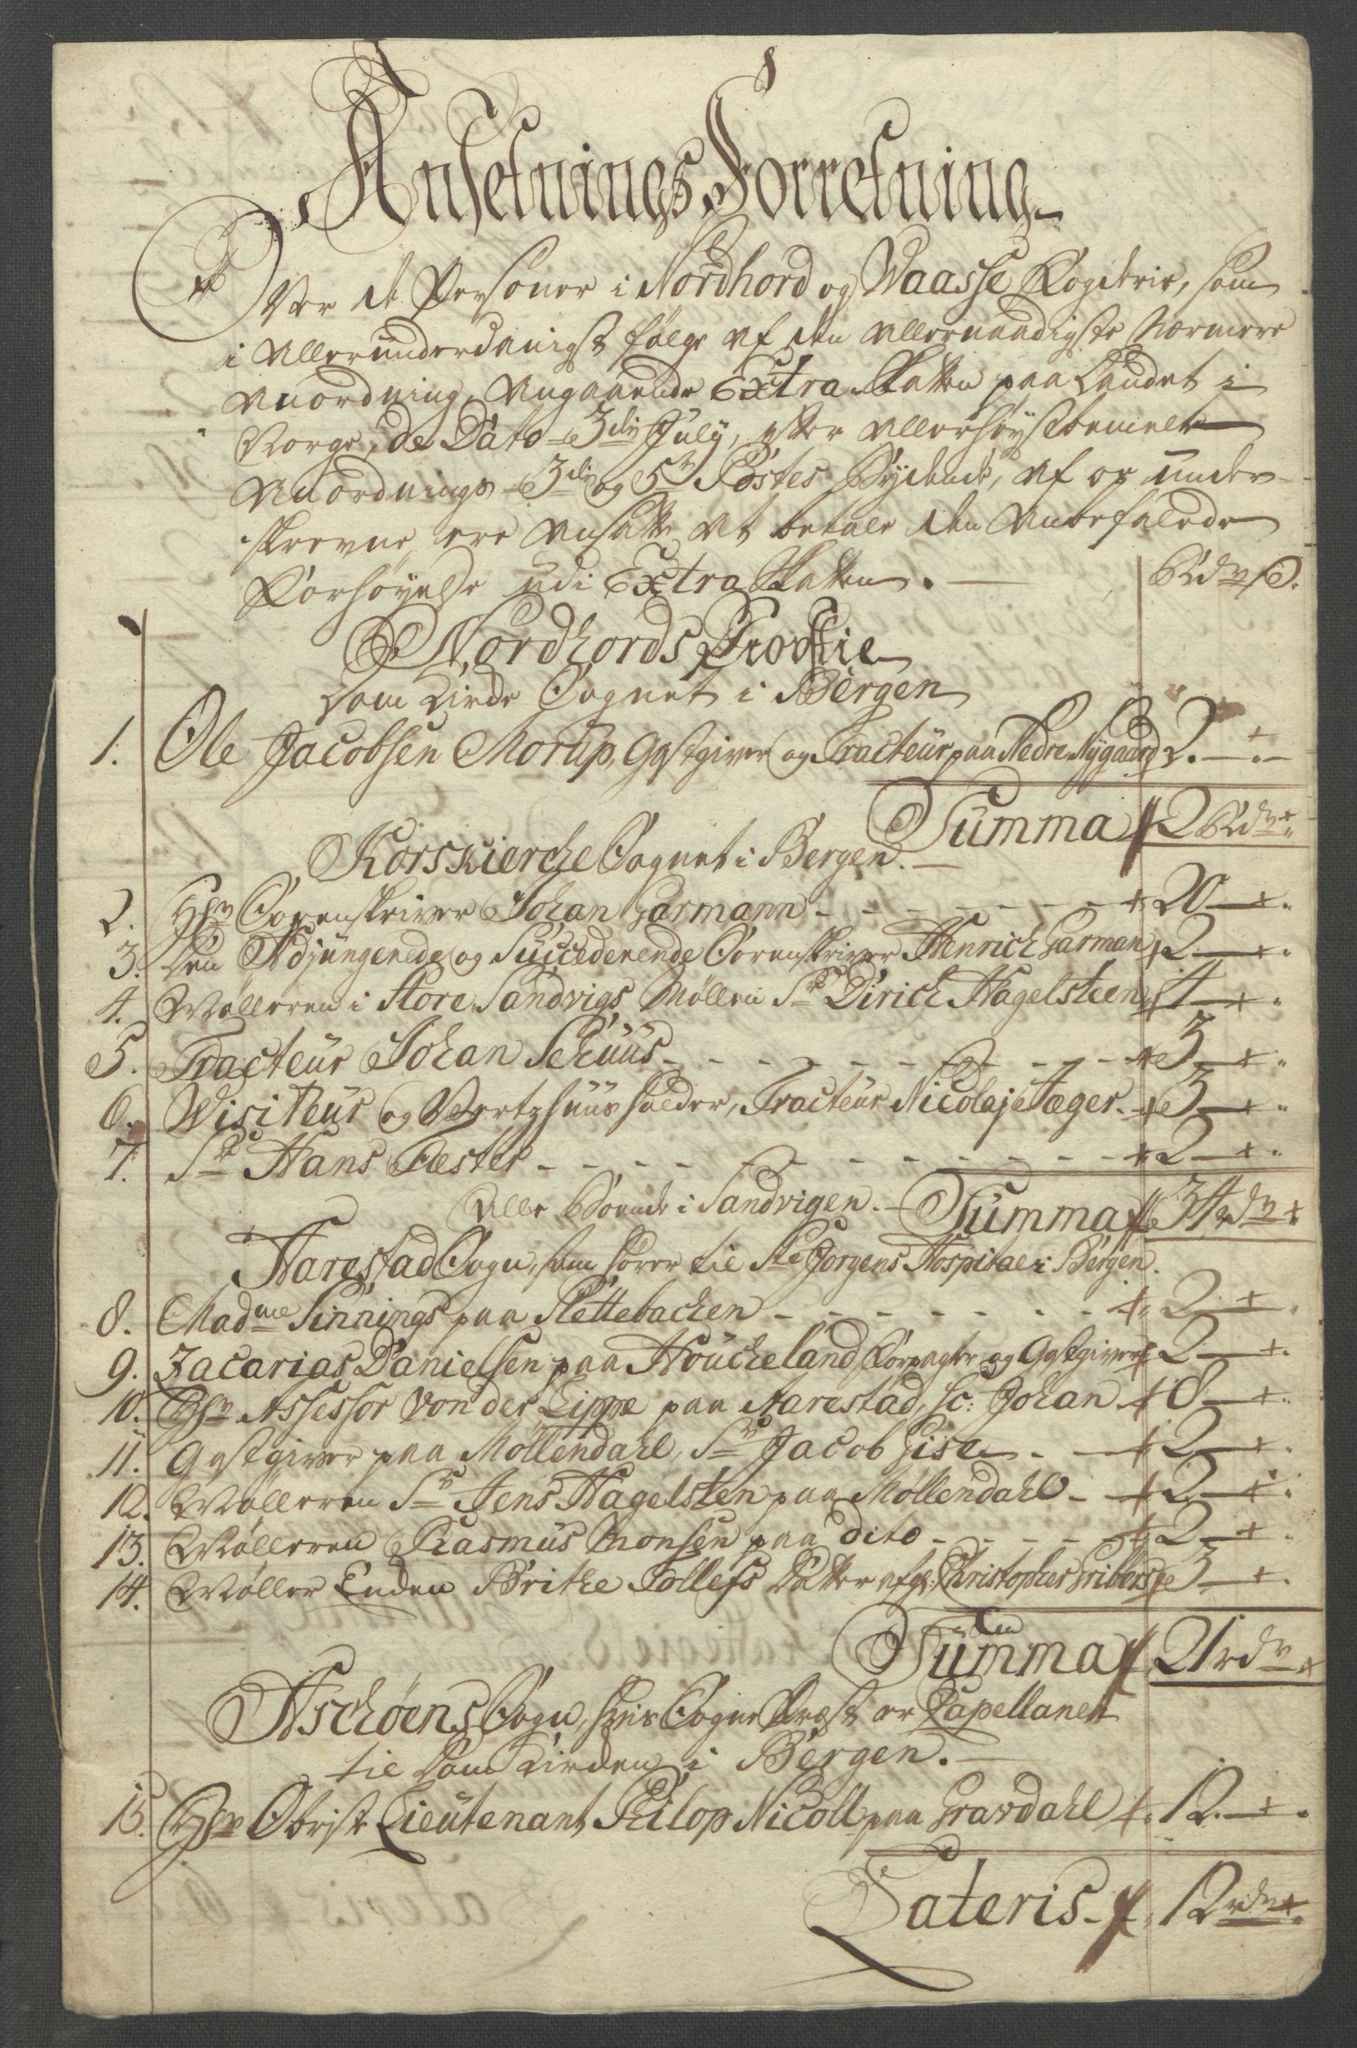 Ansetnings Forretning
Over de Personer i Nordhord og Waasse Fogderie, som
i allerunderdanigst følge af den allernaadigste Nærmere
Anordning, Angaaende Extra Skatten paa Landet i
Norge, de Dato 3die July, efter allerhøystbemelte
Anordnings 3die og 5te Postes Lydende, af os under-
skrevne ere ansatte at betale den anbefalede
Forhøyelse udi Extra Skatten.
Rdr ß.
Nordhords Provstie
Dom Kirke Sognet i Bergen
1. Ole Jacobsen Morup, Gastgiver og Tracteur paa Nedre Nygaard 2.
Summa 2 Rdr
Korskierche Sognet i Bergen.
2. Hr Sorenskriver Johan Garmann 20
3. den Adjungerede og Succederende Sorenskriver Henrich Garman 2
4. Mølleren i Store Sandvigs Møllen Sr Dirich Hagelsteen 4
5. Tracteur Johan Schuus 3
6. Visiteur og Vertshuusholder, Tracteur Nicolaj Jæger 3
7. Sr Hans Fæster 2
Alle Boende i Sandvigen. Summa 34 rdr
Harestad Sogn, som hører til St Jørgens Hospital i Bergen.
8. Madme Sinnings paa Slettebachen 2
9. Zacarias Danielsen paa Houcheland, Forpagter og Gastgiver 2
10. Hr Assessor Von der Lippe paa Aarestad, sc: Johan 8
11. Gastgiver paa Møllendahl, Sr Jacob Gise 2
12. Mølleren Sr Jens Hagelsten paa Møllendahl 2
13. Mølleren Rasmus Monsen paa dito 2
14. Møller Enken Brithe Sollefs Datter afg: Christopher Gribers 3
Summa 21 rdr
Aschøens Sogn, hvis Sogne Præst er Capellanen
til Dom Kirken i Bergen.
15. Hr Obrist Lieutenant Philop Nicoll paa Gravdahl 12.
Lateris 12 rdr